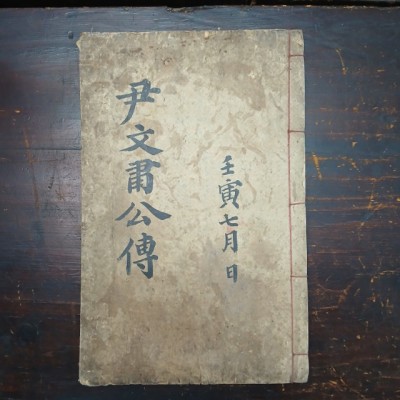 壬寅七月 日
尹文肅公傳